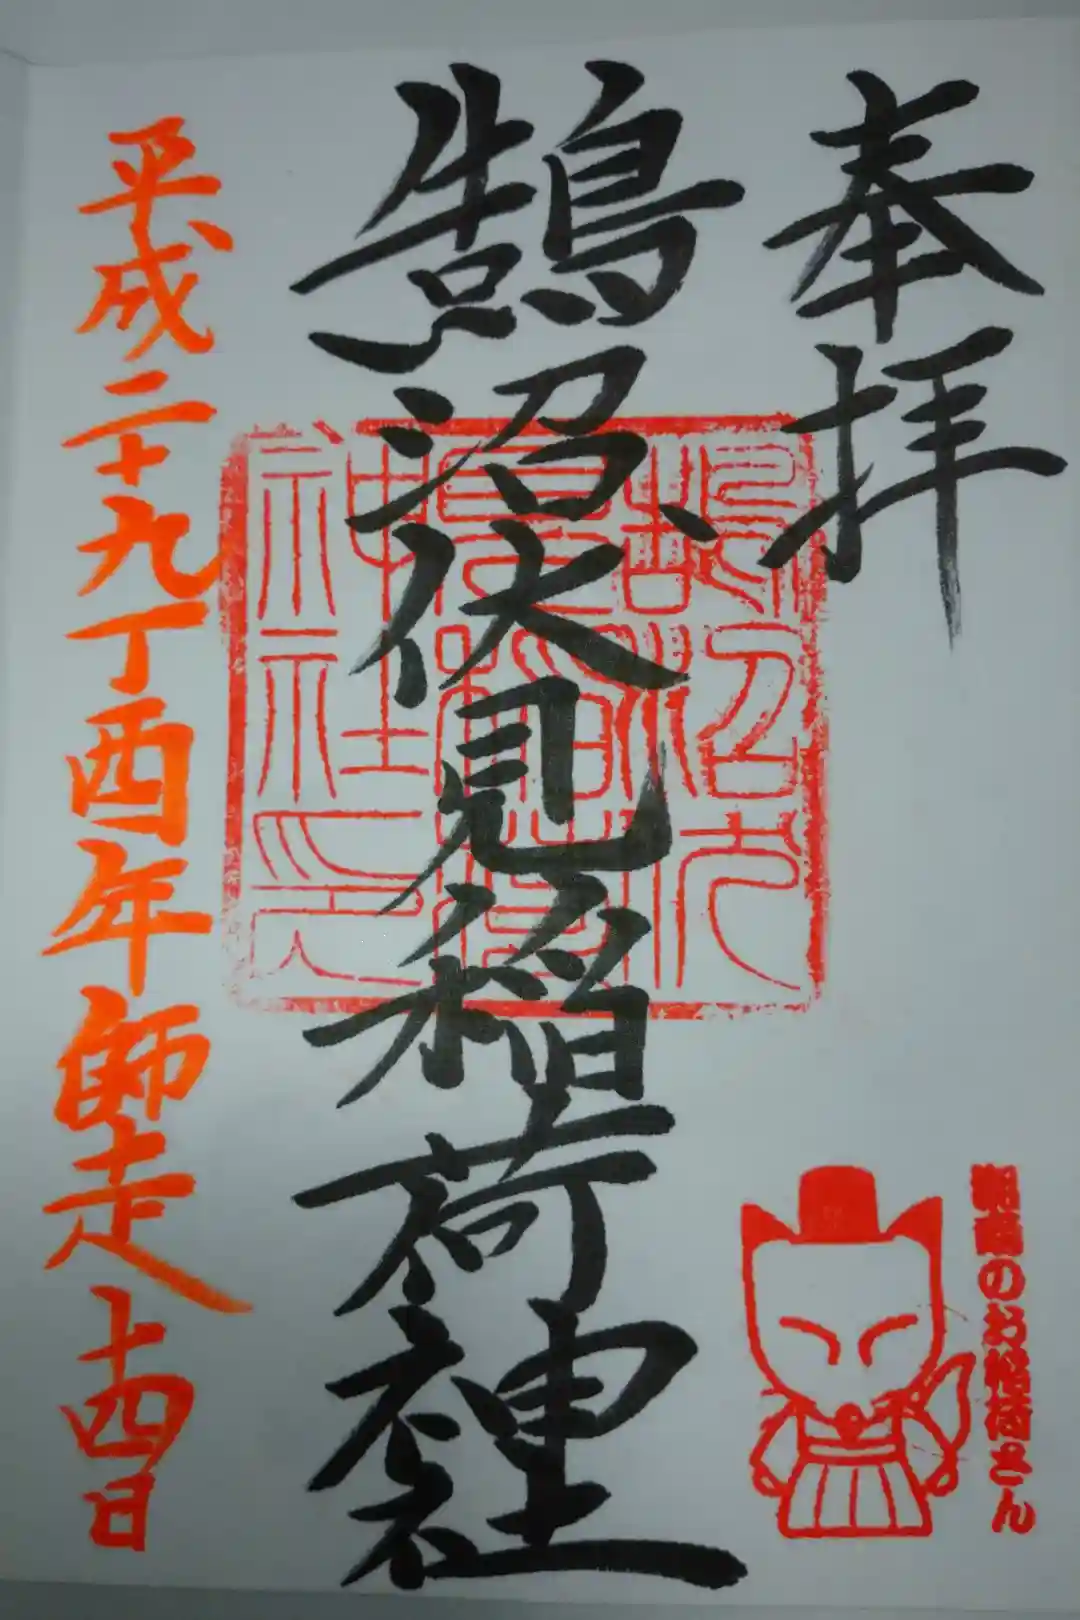 奉拝
鵠沼伏見稲荷神社
平成二十九丁酉年師走十四日
鵠沼伏見稲荷神社印
湘南のお稲荷さん